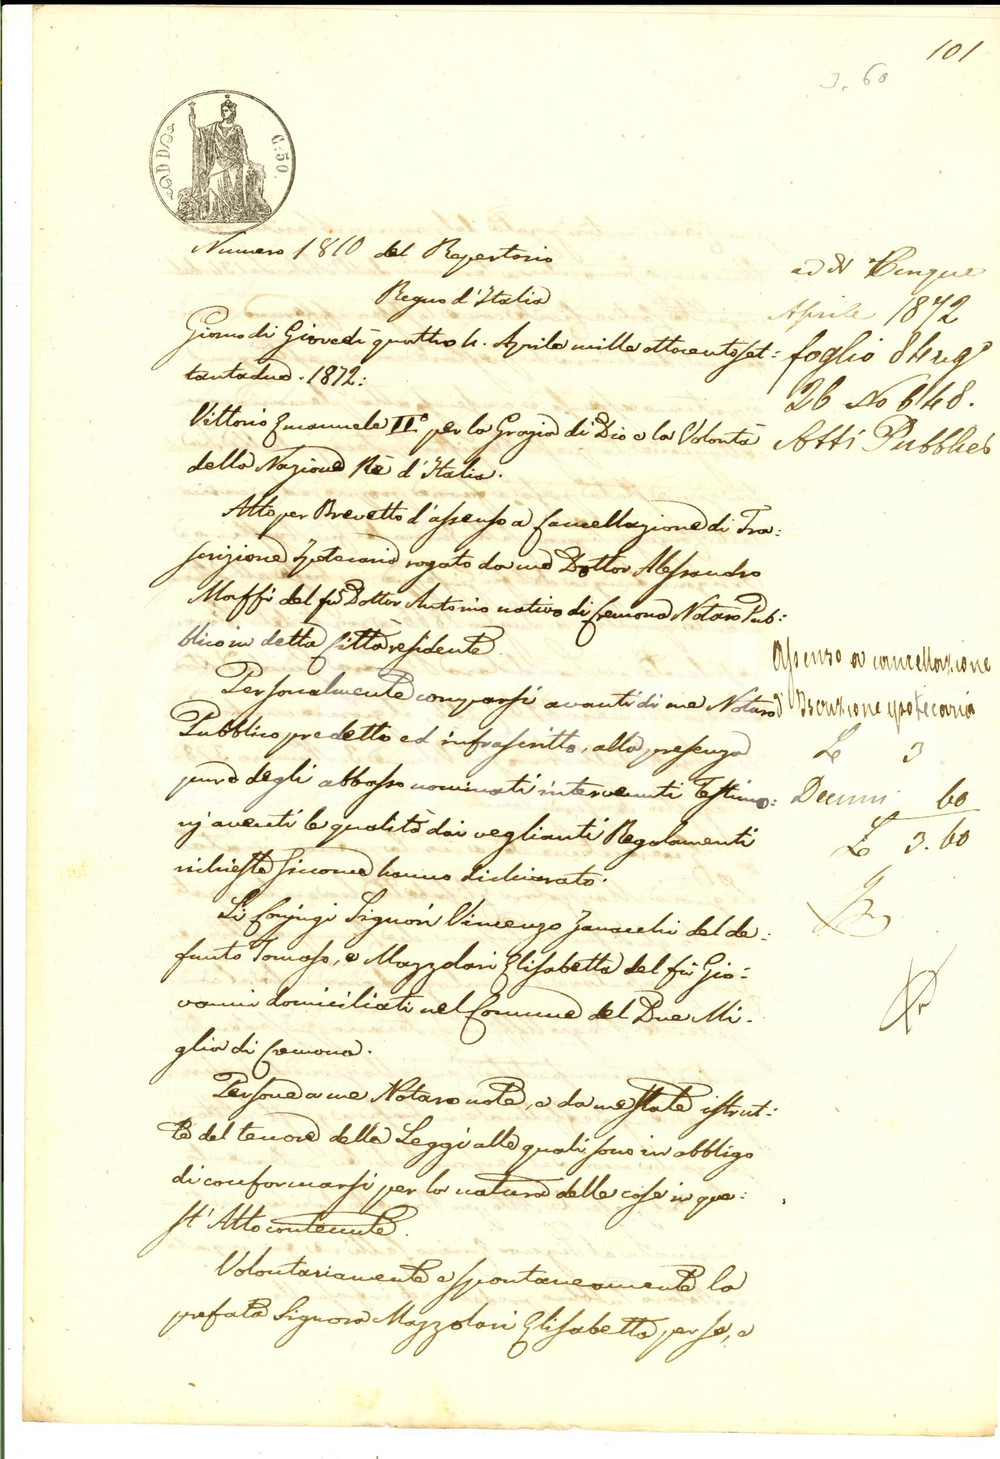 101
3.60
C. 50.
Numero 1810 del Repertorio
Regno d'Italia
Giorno di Giovedì quattro 4. Aprile mille ottocento set=
tantadue. 1872:
Vittorio Emanuele II° per la Grazia di Dio e la Volontà
della Nazione Rè d'Italia.
Atto per Brevetto d'assenso a Cancellazione di Tra=
scrizione Ipotecaria rogato da me Dottor Alessandro
Maffi del fù Dottor Antonio nativo di Cremona Notaro Pub=
blico in detta Città residente.
Personalmente comparsi avanti di me Notaro
Pubblico predetto ed infrascritto, alla presenza
pure degli abbasso nominati intervenuti Testimo=
nj aventi le qualità dai veglianti Regolamenti
richieste siccome hanno dichiarato.
Li Conjugi Signori Vincenzo Zanacchi del de=
funto Tomaso, e Mazzolari Elisabetta del fù Gio=
vanni domiciliati nel Comune del Due Mi=
glia di Cremona.
Persone a me Notaro note, e da me state istrut=
te del tenore delle Leggi alle quali sono in obbligo
di conformarsi per la natura delle cose in que=
st'Atto contenute.
Volontariamente e spontaneamente la
prefata Signora Mazzolari Elisabetta per se, e
ad Cinque
Aprile 1872
foglio 84 regº
26 No 648.
Atti Pubblici
Assenso a cancellazione
d'Iscrizione ipotecaria
L. 3
Decimi 60
L. 3.60